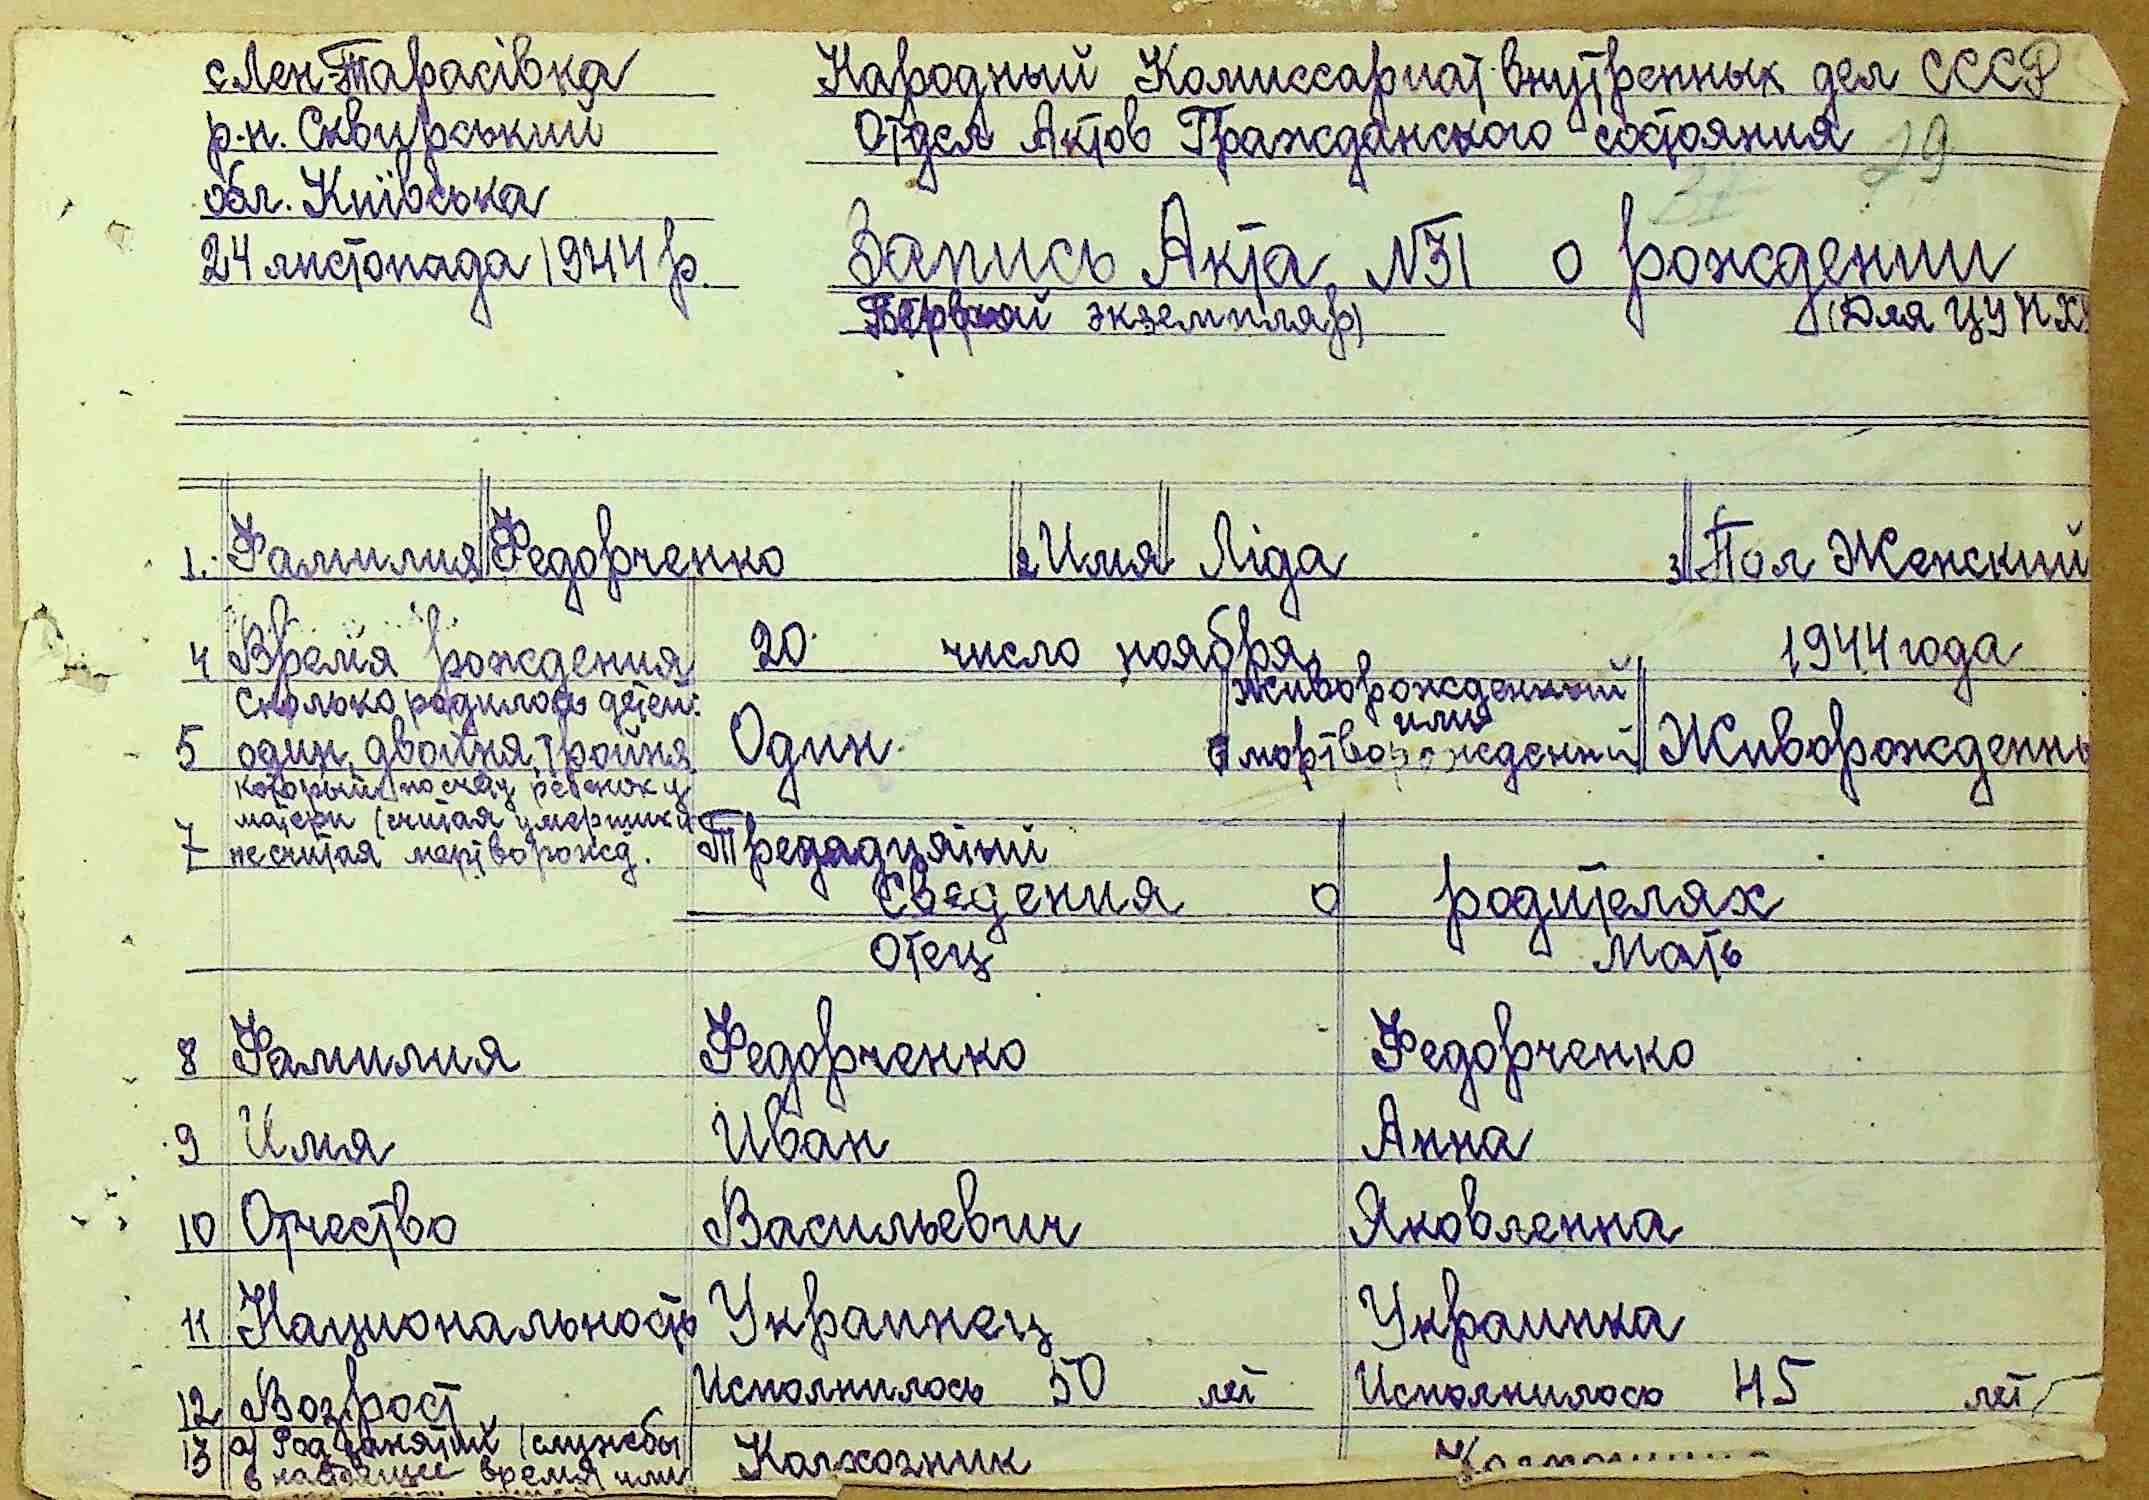 с Лен-Тарасівка
р-н. Сквирський
обл. Київська
24 листопада 1944 р.
Народный Комиссариат внутренных дел СССР
Отдел Актов Гражданского состояния
19
31
Запись Акта N31 о рождении
Первой экземпляр)
(Для ЦУНХ
1. Фамилия Федорченко 2 Имя Ліда 3 Пол Женский
4 Время рождения 20 число ноября 1944 года
5 Сколько родилось детей:
один, двойня, тройня Один
6 Живорожденный
или
мортворожденний Живорожденны
7 который по счету ребенок у
матери (считая умерших и
несчитая мертворожд. Тредадцятий
Сведения о родителях
Отец Мать
8 Фамилия Федорченко Федорченко
9 Имя Иван Анна
10 Отчество Васильевич Яковленна
11 Национальность Украинец Украинка
12 Возрост Исполнилось 50 лет Исполнилось 45 лет
13 а) Род занятий (службы
в настоящее время или Колхозник